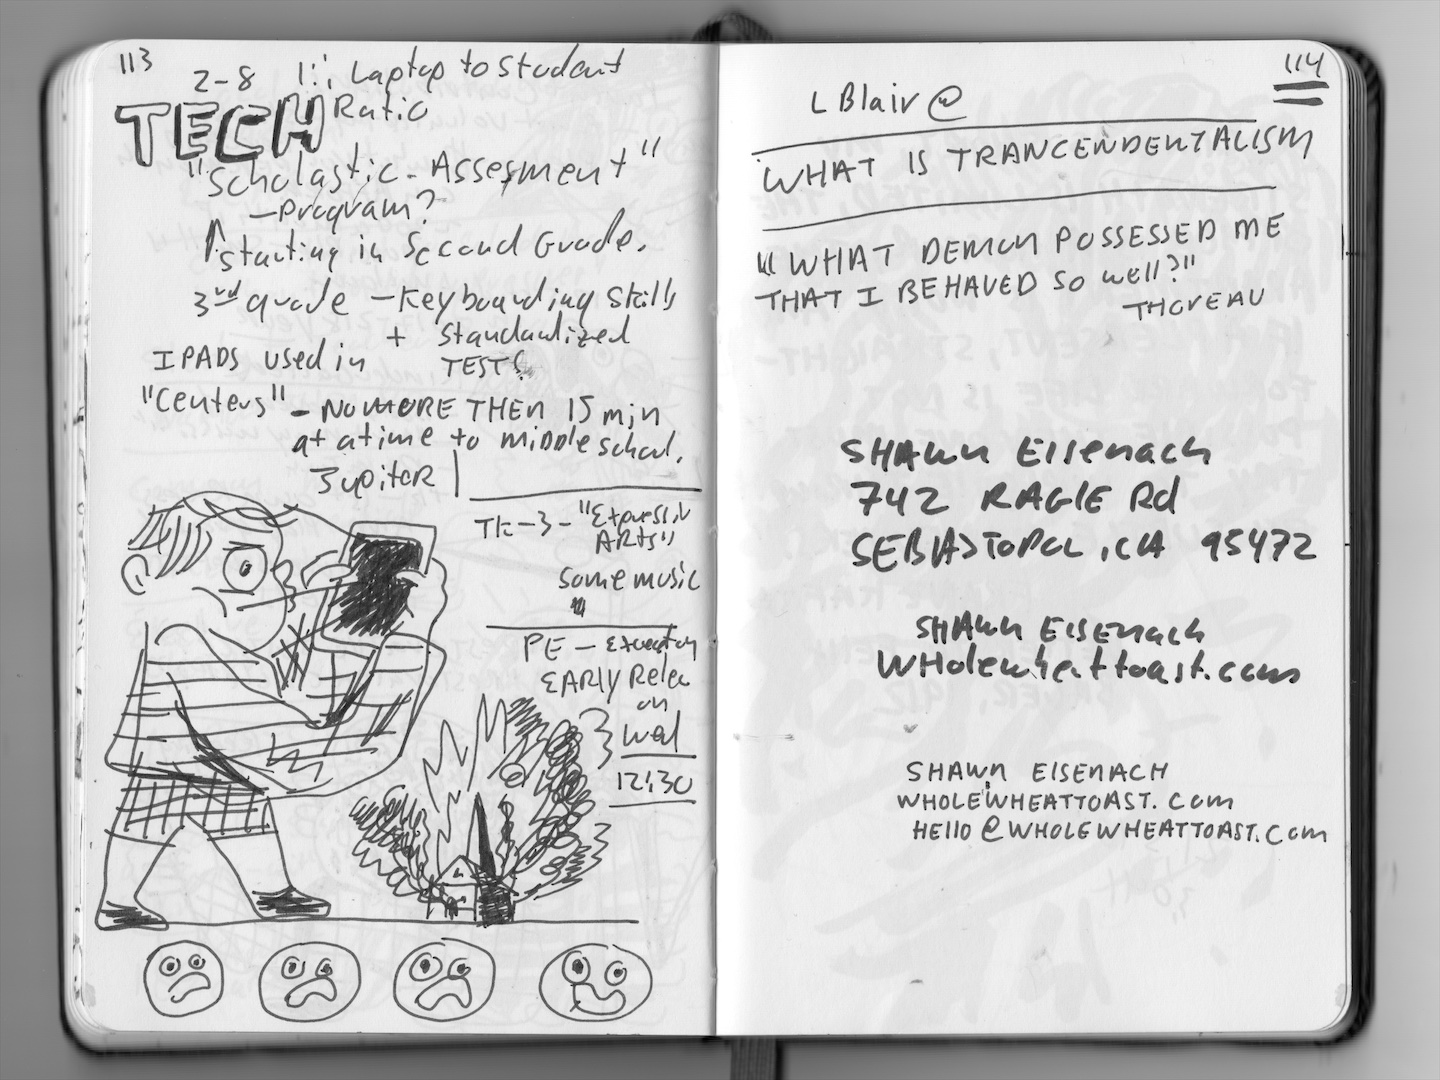 113
2-8 1:1 Laptop to Student
TECH Ratio
"Scholastic - Assesment"
- Program?
starting in Second Grade.
3rd grade - Keyboarding Skills
+ Standardized
IPADS used in TEST
"Centers" - NO MORE THEN 15 min
at a time to middle school.
Jupiter
TK-3 - "Expressiv
ARTS"
some music
PE -
EARLY Relea
on
Wed
12:30
114
L Blair @
WHAT IS TRANCENDENTALISM
"WHAT DEMON POSSESSED ME
THAT I BEHAVED SO well?"
THOREAU
SHAWN EISENACH
742 RAGLE Rd
SEBASTOPOL, CA 95472
SHAWN EISENACH
Wholewheattoast.com
SHAWN EISENACH
WHOLEWHEATTOAST.COM
HELLO@WHOLEWHEATTOAST.COM